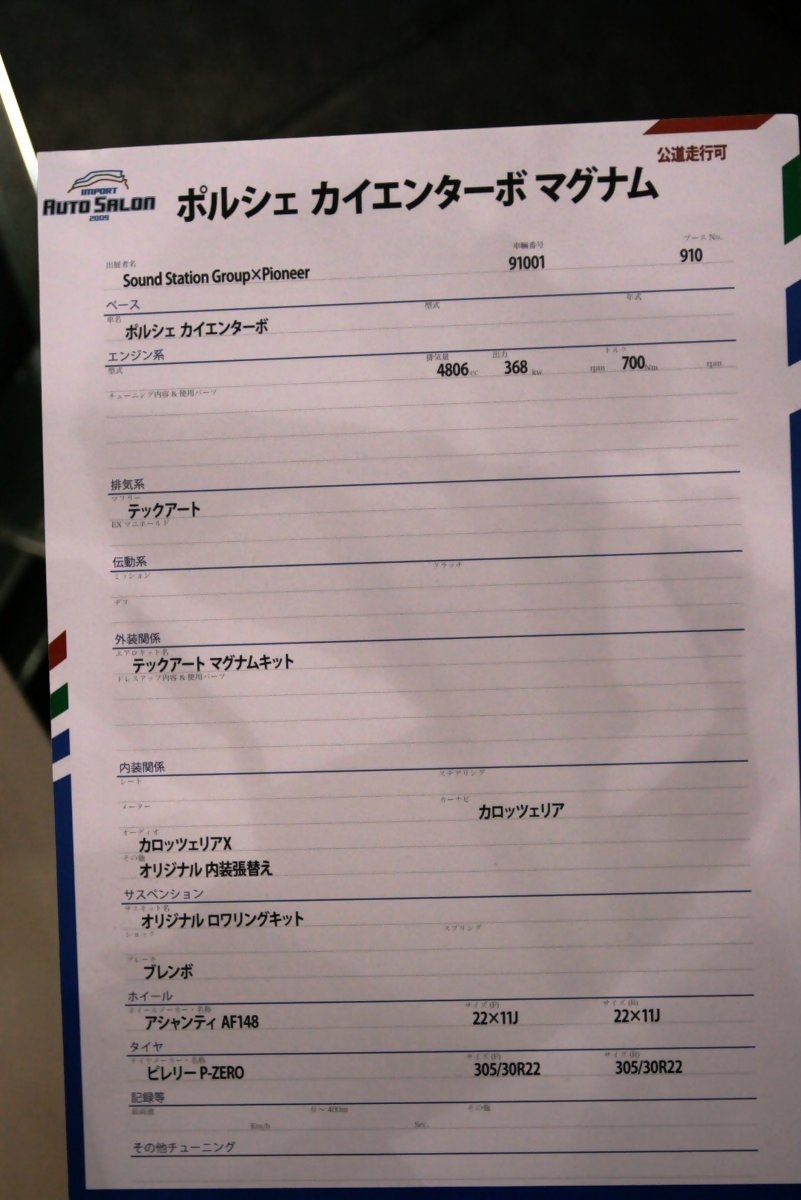 公道走行可
IMPORT
AUTO SALON
2009
ポルシェ カイエンターボ マグナム
出展者名 車輌番号 ブース No.
Sound Station Group×Pioneer 91001 910
ベース
車名 型式 年式
ポルシェ カイエンターボ
エンジン系
型式 排気量 出力 トルク
4806cc 368 kw rpm 700Nm rpm
チューニング内容 & 使用パーツ
排気系
マフラー
テックアート
EX マニホールド
伝動系
ミッション クラッチ
デフ
外装関係
エアロキット名
テックアート マグナムキット
ドレスアップ内容 & 使用パーツ
内装関係
シート ステアリング
メーター カーナビ
カロッツェリア
オーディオ
カロッツェリアX
その他
オリジナル 内装張替え
サスペンション
サスキット名
オリジナル ロワリングキット
ショック スプリング
ブレーキ
ブレンボ
ホイール
ホイールメーカー・名称 サイズ (F) サイズ (R)
アシャンティ AF148 22×11J 22×11J
タイヤ
タイヤメーカー・名称 サイズ (F) サイズ (R)
ピレリー P-ZERO 305/30R22 305/30R22
記録等
最高速 0〜400m その他
Km/h Sec.
その他チューニング